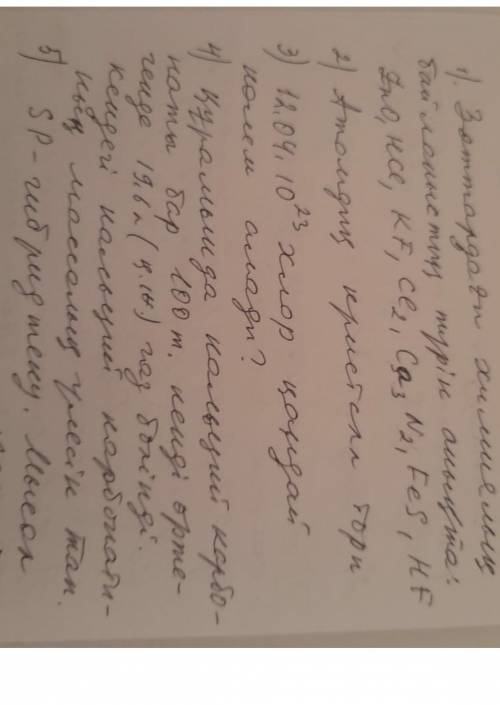 1). Заттардағы химиялық
байланыстың түрін анықта:
ZnO, HCl, KF, Cl2, Ca3N2, FeS, HF
2) Атомдық кристалл торы
3) 12.04.10^23 хлор қандай
көлем алады?
4) Құрамында кальций карбо-
наты бар 100 т. кенді өрте-
генде 19,6 л (қ.ж.) газ бөлінді.
Кендегі кальций карбонаты-
ның массалық үлесін тап.
5) SP-гибридтену. Мысал